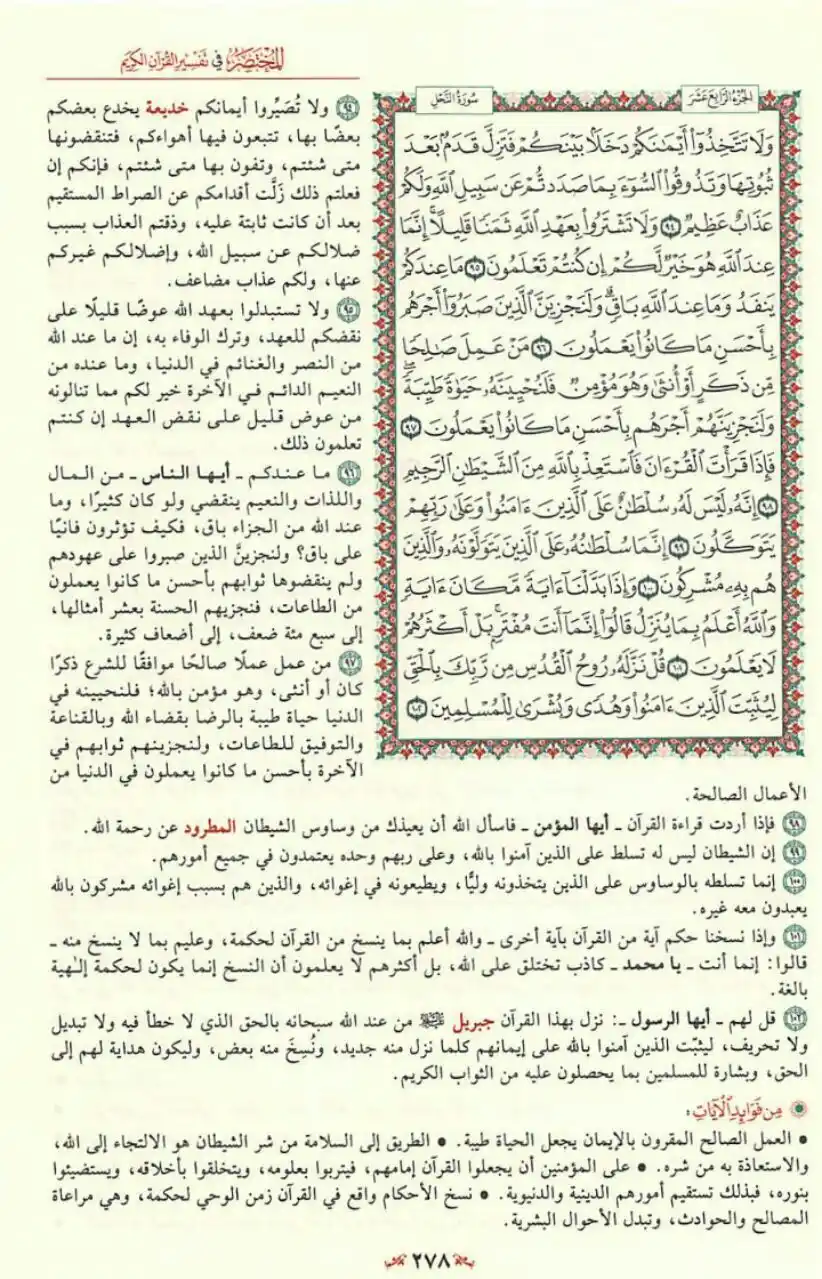 المختصر في تفسير القرآن الكريم
الجزء الرابع عشر
سورة النحل
وَلَا تَتَّخِذُوٓاْ أَيۡمَٰنَكُمۡ دَخَلَۢا بَيۡنَكُمۡ فَتَزِلَّ قَدَمُۢ بَعۡدَ
ثُبُوتِهَا وَتَذُوقُواْ ٱلسُّوٓءَ بِمَا صَدَدتُّمۡ عَن سَبِيلِ ٱللَّهِ وَلَكُمۡ
عَذَابٌ عَظِيمٞ ٩٤ وَلَا تَشۡتَرُواْ بِعَهۡدِ ٱللَّهِ ثَمَنٗا قَلِيلًاۚ إِنَّمَا
عِندَ ٱللَّهِ هُوَ خَيۡرٞ لَّكُمۡ إِن كُنتُمۡ تَعۡلَمُونَ ٩٥ مَا عِندَكُمۡ
يَنفَدُ وَمَا عِندَ ٱللَّهِ بَاقٖۗ وَلَنَجۡزِيَنَّ ٱلَّذِينَ صَبَرُوٓاْ أَجۡرَهُم
بِأَحۡسَنِ مَا كَانُواْ يَعۡمَلُونَ ٩٦ مَنۡ عَمِلَ صَٰلِحٗا
مِّن ذَكَرٍ أَوۡ أُنثَىٰ وَهُوَ مُؤۡمِنٞ فَلَنُحۡيِيَنَّهُۥ حَيَوٰةٗ طَيِّبَةٗۖ
وَلَنَجۡزِيَنَّهُمۡ أَجۡرَهُم بِأَحۡسَنِ مَا كَانُواْ يَعۡمَلُونَ ٩٧
فَإِذَا قَرَأۡتَ ٱلۡقُرۡءَانَ فَٱسۡتَعِذۡ بِٱللَّهِ مِنَ ٱلشَّيۡطَٰنِ ٱلرَّجِيمِ
٩٨ إِنَّهُۥ لَيۡسَ لَهُۥ سُلۡطَٰنٌ عَلَى ٱلَّذِينَ ءَامَنُواْ وَعَلَىٰ رَبِّهِمۡ
يَتَوَكَّلُونَ ٩٩ إِنَّمَا سُلۡطَٰنُهُۥ عَلَى ٱلَّذِينَ يَتَوَلَّوۡنَهُۥ وَٱلَّذِينَ
هُم بِهِۦ مُشۡرِكُونَ ١٠٠ وَإِذَا بَدَّلۡنَآ ءَايَةٗ مَّكَانَ ءَايَةٖ
وَٱللَّهُ أَعۡلَمُ بِمَا يُنَزِّلُ قَالُوٓاْ إِنَّمَآ أَنتَ مُفۡتَرِۭۚ بَلۡ أَكۡثَرُهُمۡ
لَا يَعۡلَمُونَ ١٠١ قُلۡ نَزَّلَهُۥ رُوحُ ٱلۡقُدُسِ مِن رَّبِّكَ بِٱلۡحَقِّ
لِيُثَبِّتَ ٱلَّذِينَ ءَامَنُواْ وَهُدٗى وَبُشۡرَىٰ لِلۡمُسۡلِمِينَ ١٠٢
٩٤ ولا تُصَيِّروا أيمانكم خديعة يخدع بعضكم
بعضًا بها، تتبعون فيها أهواءكم، فتنقضونها
متى شئتم، وتفون بها متى شئتم، فإنكم إن
فعلتم ذلك زَلَّت أقدامكم عن الصراط المستقيم
بعد أن كانت ثابتة عليه، وذقتم العذاب بسبب
ضلالكم عن سبيل الله، وإضلالكم غيركم
عنها، ولكم عذاب مضاعف.
٩٥ ولا تستبدلوا بعهد الله عوضًا قليلًا على
نقضكم للعهد، وترك الوفاء به، إن ما عند الله
من النصر والغنائم في الدنيا، وما عنده من
النعيم الدائم في الآخرة خير لكم مما تنالونه
من عوض قليل على نقض العهد إن كنتم
تعلمون ذلك.
٩٦ ما عندكم ـ أيها الناس ـ من المال
واللذات والنعيم ينقضي ولو كان كثيرًا، وما
عند الله من الجزاء باق، فكيف تؤثرون فانيًا
على باق؟ ولنجزينَّ الذين صبروا على عهودهم
ولم ينقضوها ثوابهم بأحسن ما كانوا يعملون
من الطاعات، فنجزيهم الحسنة بعشر أمثالها،
إلى سبع مئة ضعف، إلى أضعاف كثيرة.
٩٧ من عمل عملًا صالحًا موافقًا للشرع ذكرًا
كان أو أنثى، وهو مؤمن بالله؛ فلنحيينه في
الدنيا حياة طيبة بالرضا بقضاء الله وبالقناعة
والتوفيق للطاعات، ولنجزينهم ثوابهم في
الآخرة بأحسن ما كانوا يعملون في الدنيا من
الأعمال الصالحة.
٩٨ فإذا أردت قراءة القرآن ـ أيها المؤمن ـ فاسأل الله أن يعيذك من وساوس الشيطان المطرود عن رحمة الله.
٩٩ إن الشيطان ليس له تسلط على الذين آمنوا بالله، وعلى ربهم وحده يعتمدون في جميع أمورهم.
١٠٠ إنما تسلطه بالوساوس على الذين يتخذونه وليًّا، ويطيعونه في إغوائه، والذين هم بسبب إغوائه مشركون بالله
يعبدون معه غيره.
١٠١ وإذا نسخنا حكم آية من القرآن بآية أخرى ـ والله أعلم بما ينسخ من القرآن لحكمة، وعليم بما لا ينسخ منه ـ
قالوا: إنما أنت ـ يا محمد ـ كاذب تختلق على الله، بل أكثرهم لا يعلمون أن النسخ إنما يكون لحكمة إلهية
بالغة.
١٠٢ قل لهم ـ أيها الرسول ـ: نزل بهذا القرآن جبريل من عند الله سبحانه بالحق الذي لا خطأ فيه ولا تبديل
ولا تحريف، ليثبّت الذين آمنوا بالله على إيمانهم كلما نزل منه جديد، ونُسِخَ منه بعض، وليكون هداية لهم إلى
الحق، وبشارة للمسلمين بما يحصلون عليه من الثواب الكريم.
من فوائد الآيات:
• العمل الصالح المقرون بالإيمان يجعل الحياة طيبة. • الطريق إلى السلامة من شر الشيطان هو الالتجاء إلى الله،
والاستعاذة به من شره. • على المؤمنين أن يجعلوا القرآن إمامهم، فيتربوا بعلومه، ويتخلقوا بأخلاقه، ويستضيئوا
بنوره، فبذلك تستقيم أمورهم الدينية والدنيوية. • نسخ الأحكام واقع في القرآن زمن الوحي لحكمة، وهي مراعاة
المصالح والحوادث، وتبدل الأحوال البشرية.
٢٧٨